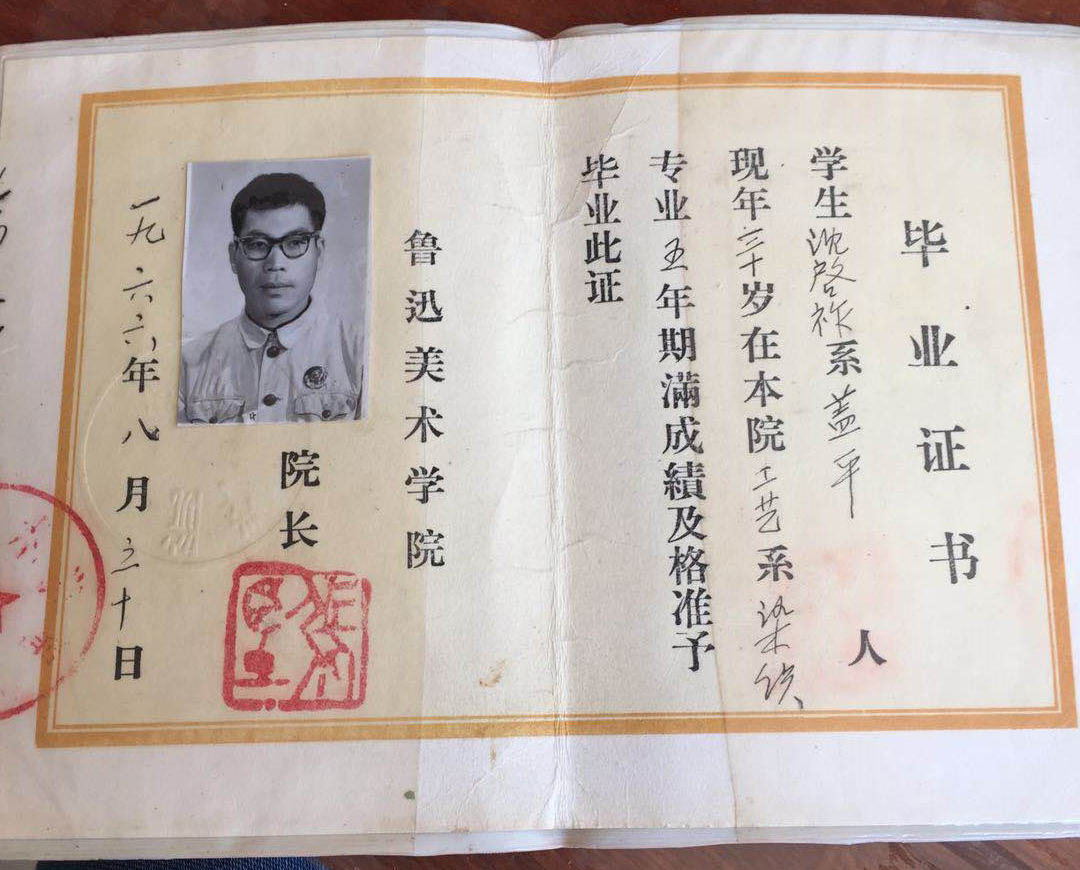 毕业证书
学生沈启祚系盖平人
现年三十岁在本院工艺系染织
专业五年期滿成績及格准予
毕业此证
鲁迅美术学院
院长
一九六六年八月三十日